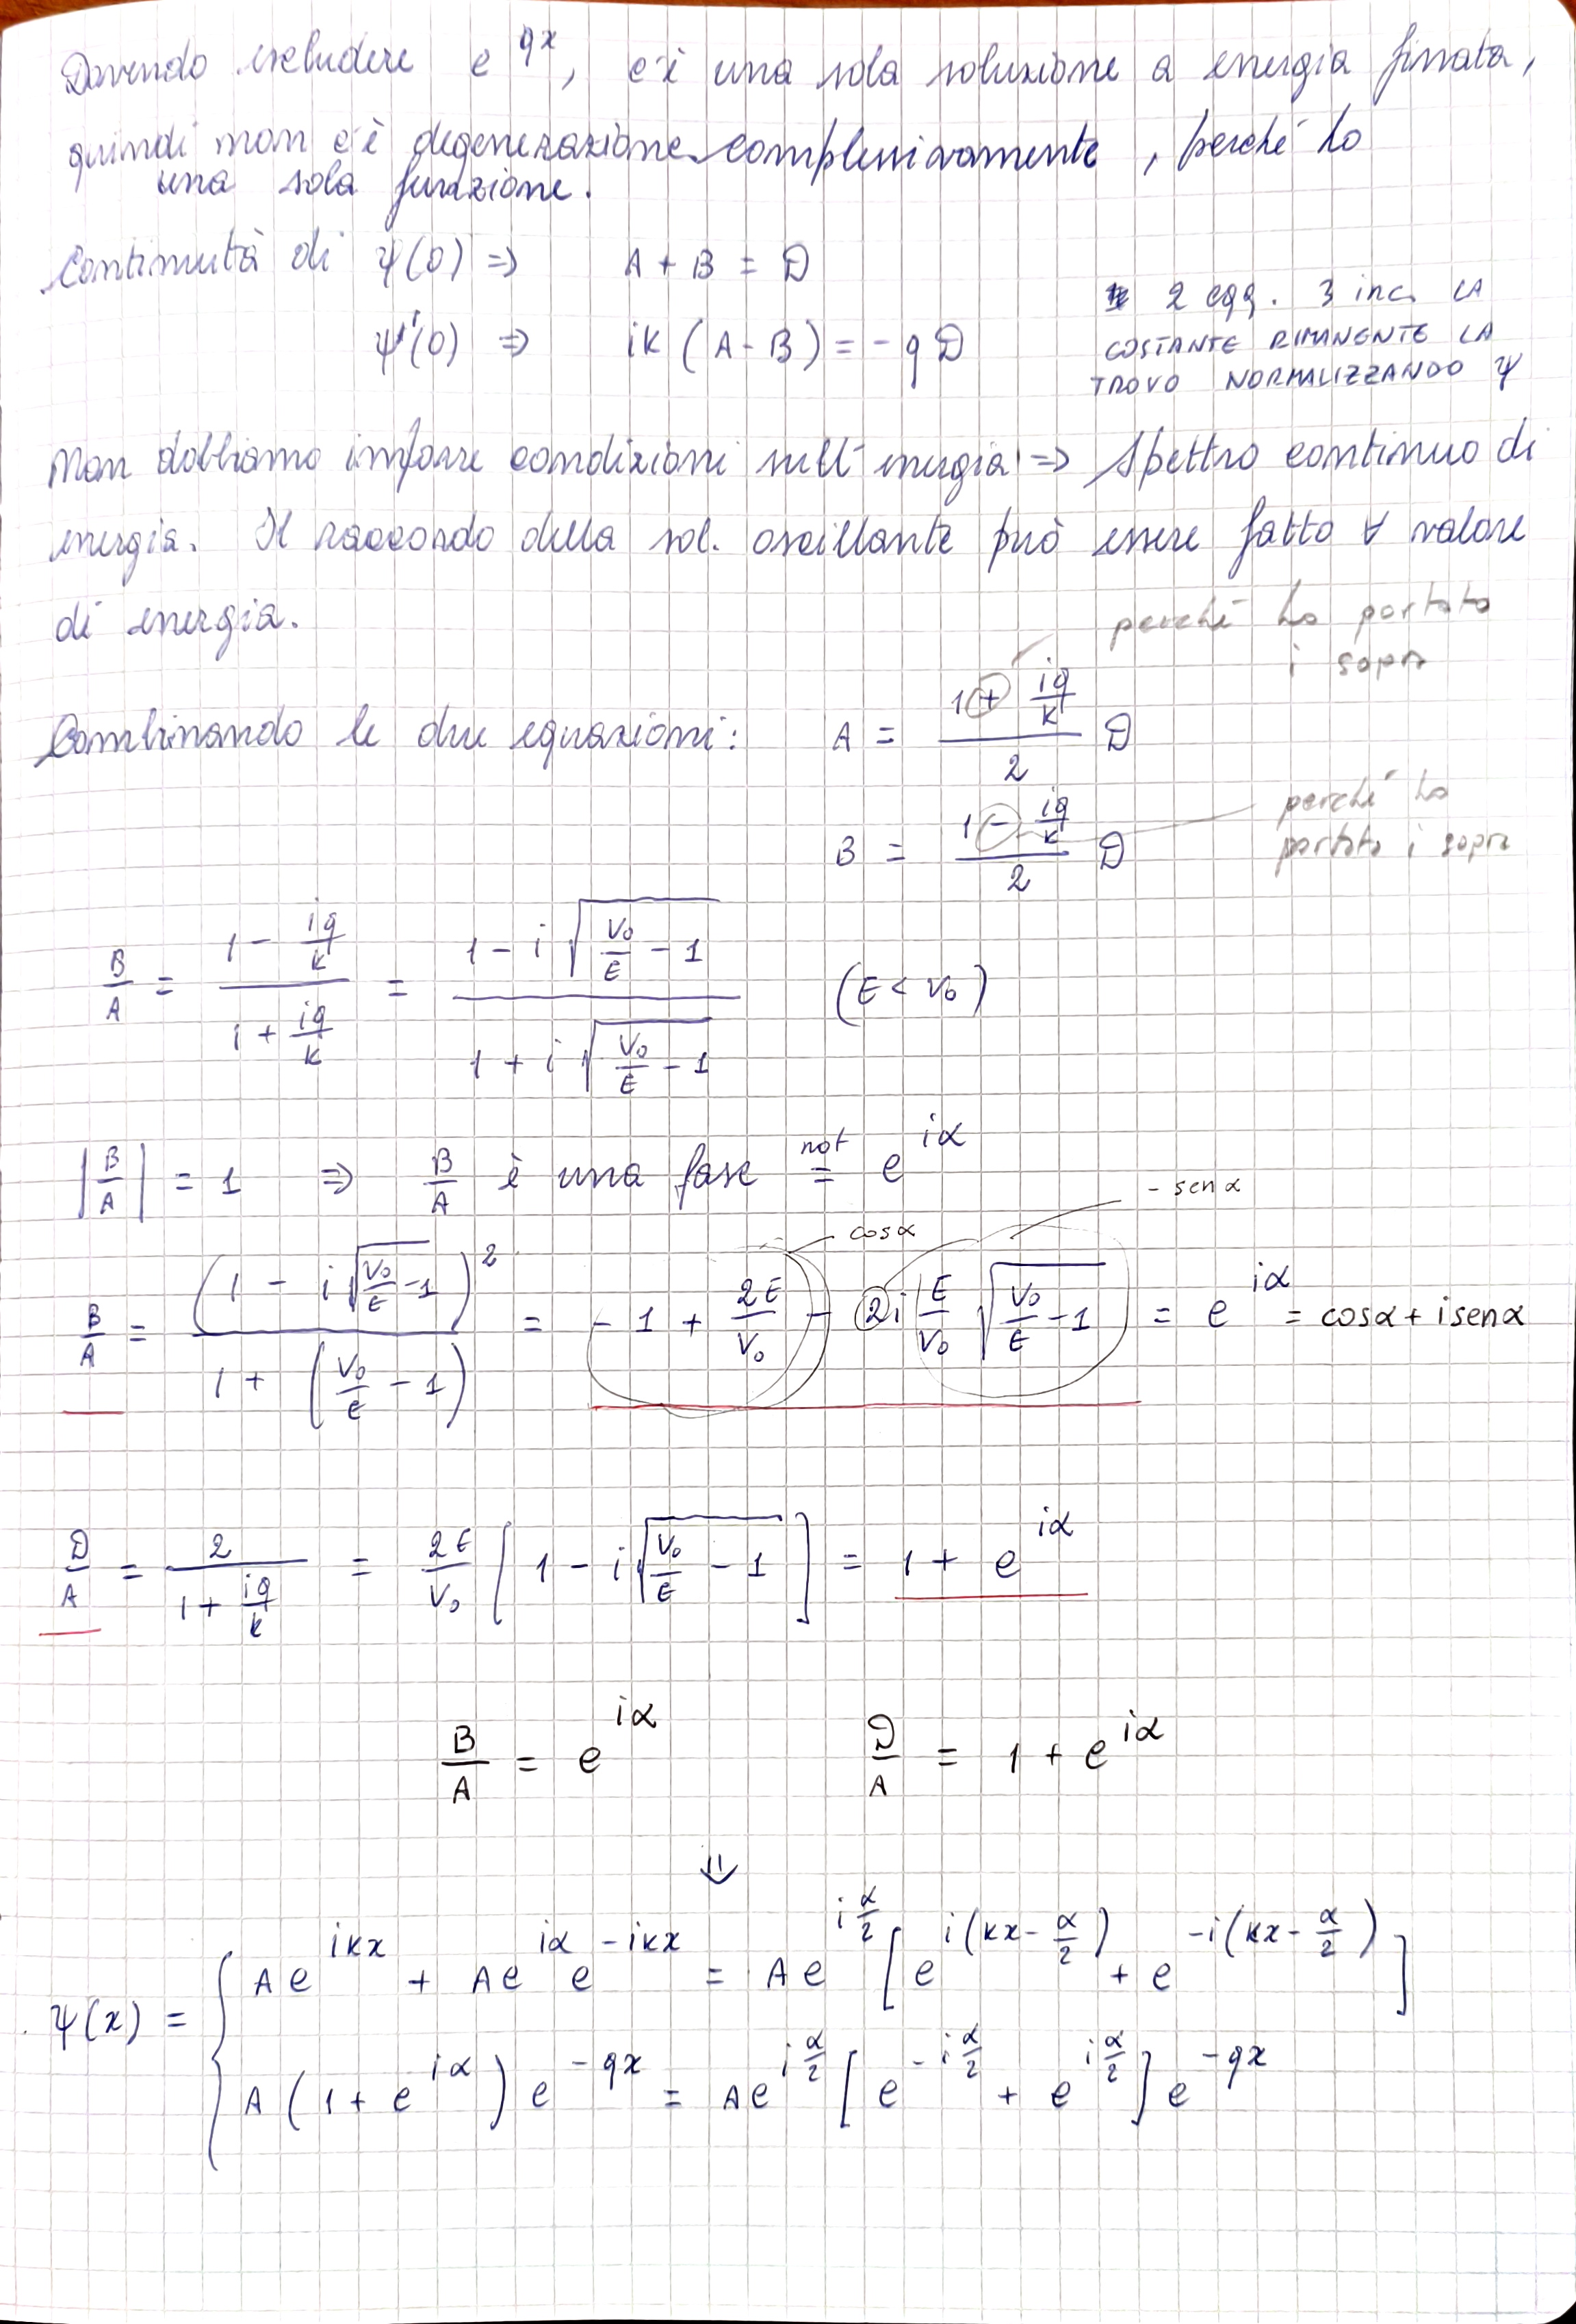 Dovendo escludere e^{qx}, c'è una sola soluzione a energia fissata,
quindi non c'è degenerazione complessivamente, perché ho
una sola funzione.
Continuità di ψ(0) ⇒ A + B = D
ψ'(0) ⇒ ik (A - B) = - q D
2 eqq. 3 inc. LA
COSTANTE RIMANENTE LA
TROVO NORMALIZZANDO ψ
Non dobbiamo imporre condizioni sull'energia ⇒ Spettro continuo di
energia. Il raccordo della sol. oscillante può essere fatto ∀ valore
di energia.
perché ho portato
i sopra
Combinando le due equazioni: A = \frac{1 + \frac{iq}{k}}{2} D
B = \frac{1 - \frac{iq}{k}}{2} D
perché ho
portato i sopra
\frac{B}{A} = \frac{1 - \frac{iq}{k}}{1 + \frac{iq}{k}} = \frac{1 - i \sqrt{\frac{V_0}{E} - 1}}{1 + i \sqrt{\frac{V_0}{E} - 1}} (E < V_0)
|\frac{B}{A}| = 1 ⇒ \frac{B}{A} è una fase \overset{not}{=} e^{iα}
- senα
cosα
\frac{B}{A} = \frac{(1 - i \sqrt{\frac{V_0}{E} - 1})^2}{1 + (\frac{V_0}{E} - 1)} = - 1 + \frac{2E}{V_0} - 2i \frac{E}{V_0} \sqrt{\frac{V_0}{E} - 1} = e^{iα} = cosα + i senα
\frac{D}{A} = \frac{2}{1 + \frac{iq}{k}} = \frac{2E}{V_0} [ 1 - i \sqrt{\frac{V_0}{E} - 1} ] = 1 + e^{iα}
\frac{B}{A} = e^{iα} \frac{D}{A} = 1 + e^{iα}
⇓
ψ(x) = { A e^{ikx} + A e^{iα} e^{-ikx} = A e^{i\frac{α}{2}} [ e^{i(kx - \frac{α}{2})} + e^{-i(kx - \frac{α}{2})} ]
A (1 + e^{iα}) e^{-qx} = A e^{i\frac{α}{2}} [ e^{-i\frac{α}{2}} + e^{i\frac{α}{2}} ] e^{-qx}